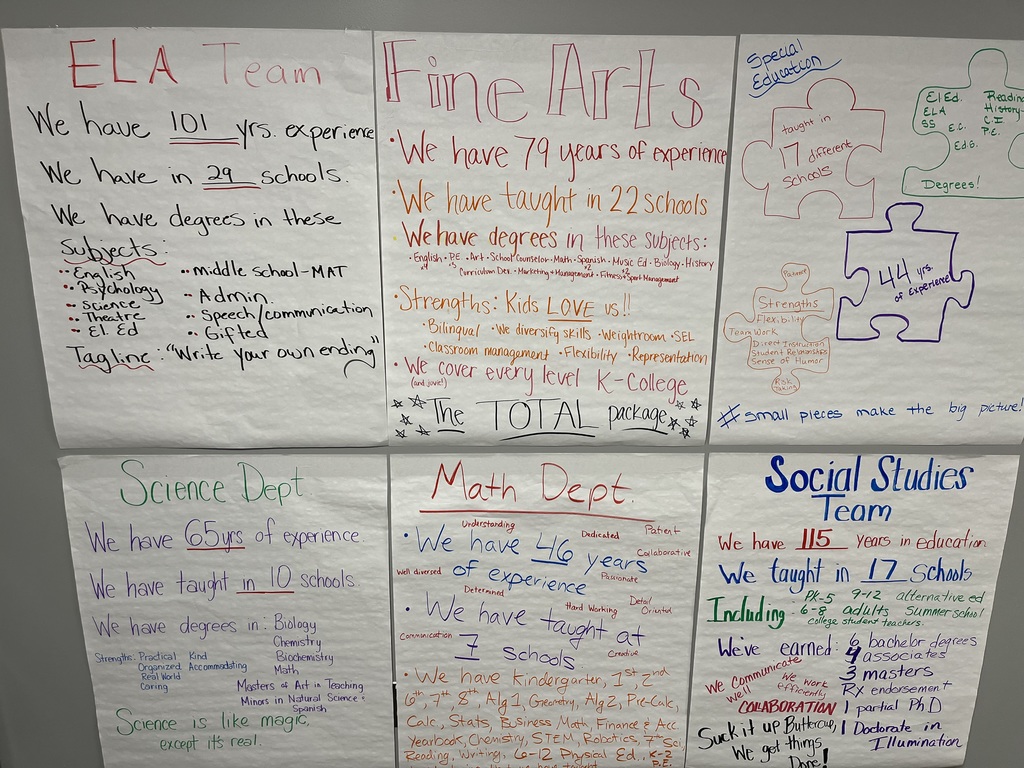 ELA Team
We have 101 yrs. experience
We have in 29 schools.
We have degrees in these
Subjects:
•• English
•• Psychology
•• Science
•• Theatre
•• El. Ed
•• middle school-MAT
•• Admin.
•• Speech/communication
•• Gifted
Tagline: "Write your own ending"
Fine Arts
• We have 79 years of experience
• We have taught in 22 schools
• We have degrees in these subjects:
• English • P.E. • Art • School Counselor • Math • Spanish • Music Ed • Biology • History
Curriculum Dev. • Marketing + Management • Fitness + Sport Management
• Strengths: Kids LOVE us!!
• Bilingual • We diversify skills • Weightroom • SEL
• Classroom management • Flexibility • Representation
• We cover every level K-College
(and juvie!)
The TOTAL package
Special
Education
taught in
17 different
schools
El Ed.
ELA
SS
E.C.
Ed.S.
Reading
History
C.I
P.E.
Degrees!
44 yrs.
of Experience
Patience
Strengths
Flexibility
Team Work
Direct Instruction
Student Relationships
Sense of Humor
Risk
Taking
# small pieces make the big picture!
Science Dept.
We have 65yrs of experience
We have taught in 10 schools.
We have degrees in: Biology
Chemistry
Biochemistry
Math
Masters of Art in Teaching
Minors in Natural Science +
Spanish
Strengths: Practical Kind
Organized Accommodating
Real World
Caring
Science is like magic,
except it's real.
Math Dept.
Understanding
Dedicated
Patient
• We have 46 years
Collaborative
Well diversed
of experience
Passionate
Determined
Hard Working
Detail
Oriented
• We have taught at
Communication
7 schools
Creative
• We have Kindergarten, 1st, 2nd
6th, 7th, 8th, Alg 1, Geometry, Alg 2, Pre-Calc,
Calc, Stats, Business Math, Finance & Acc
Yearbook, Chemistry, STEM, Robotics, 7th Sci
Reading, Writing, 6-12 Physical Ed., K-2
P.E.
Social Studies
Team
We have 115 years in education
We taught in 17 Schools
Including:
PK-5 9-12 alternative ed
6-8 adults Summer school
college student teachers.
We've earned: 6 bachelor degrees
4 associates
3 masters
Rx endorsement
1 partial PhD
1 Doctorate in
Illumination
We communicate
well
We work
efficiently
COLLABORATION
Suck it up Buttercup,
We get things
Done!